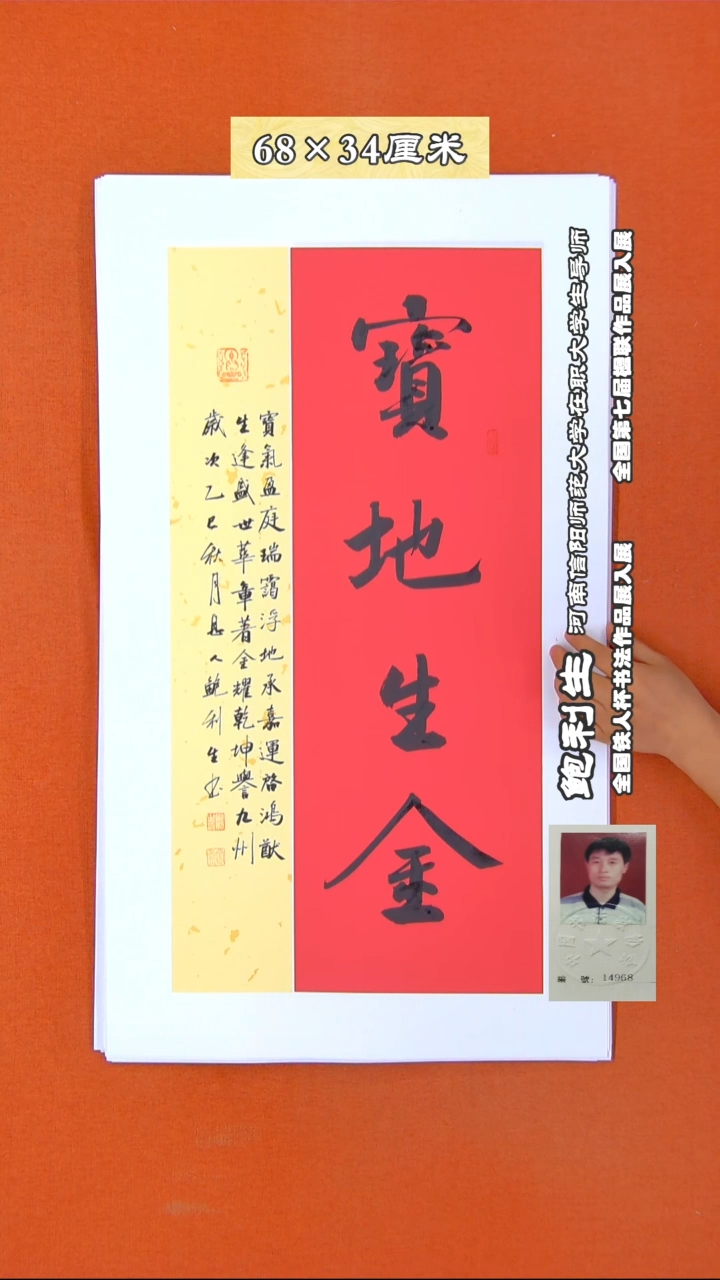 68×34厘米
寶地生金
寶氣盈庭瑞靄浮地承嘉運啓鴻猷
生逢盛世華章著金耀乾坤譽九州
歲次乙巳秋月
鮑利生书
鲍利生
河南信阳师范大学在职大学生导师
全国第七届楹联作品展入展
全国铁人杯书法作品展入展
編 號: 14968